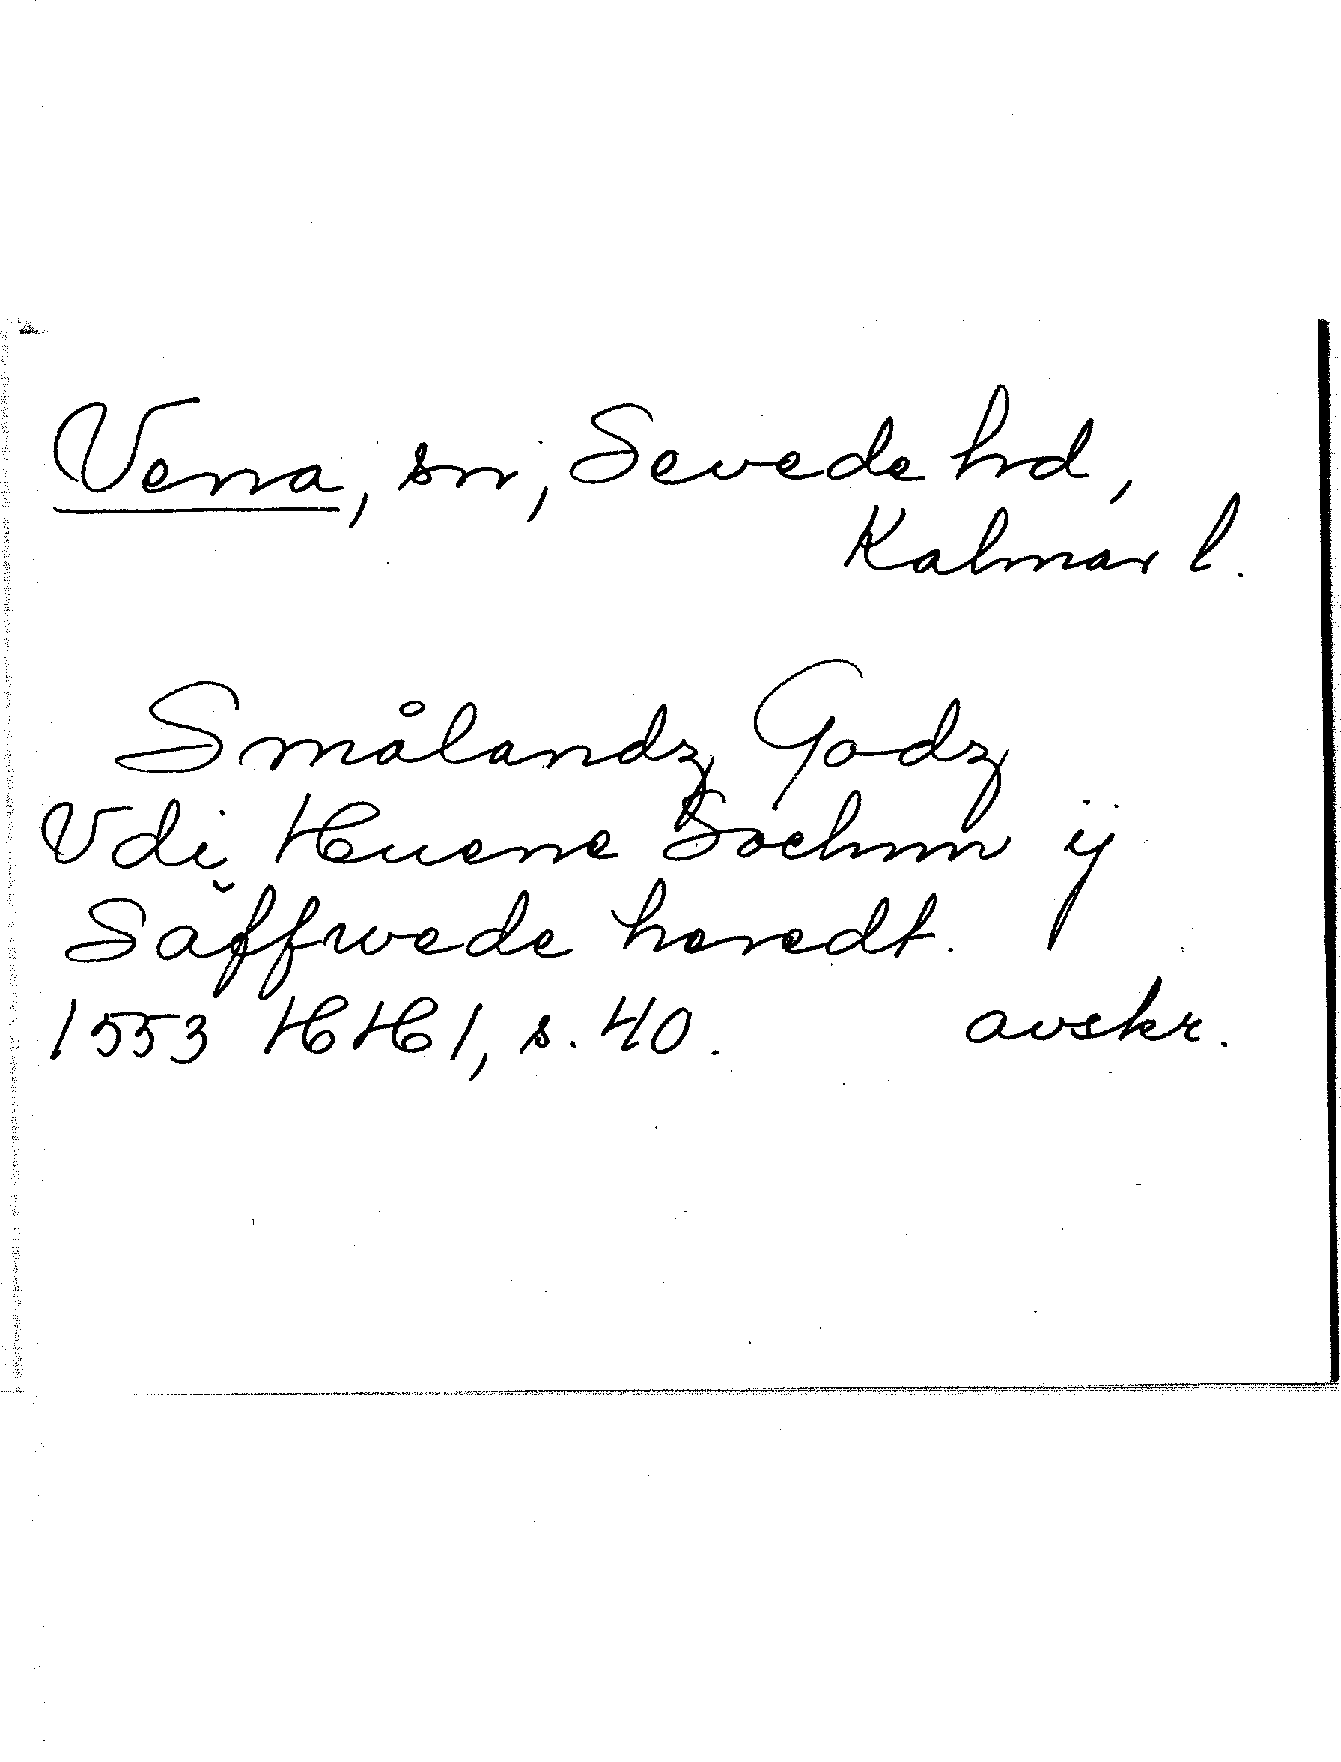 Vena, sn, Sevede hd,
Kalmar l.
Smålandz Godz
Vdi Huene Sochnn ij
Săffwede heredt.
1553 HH1, s. 40. avskr.